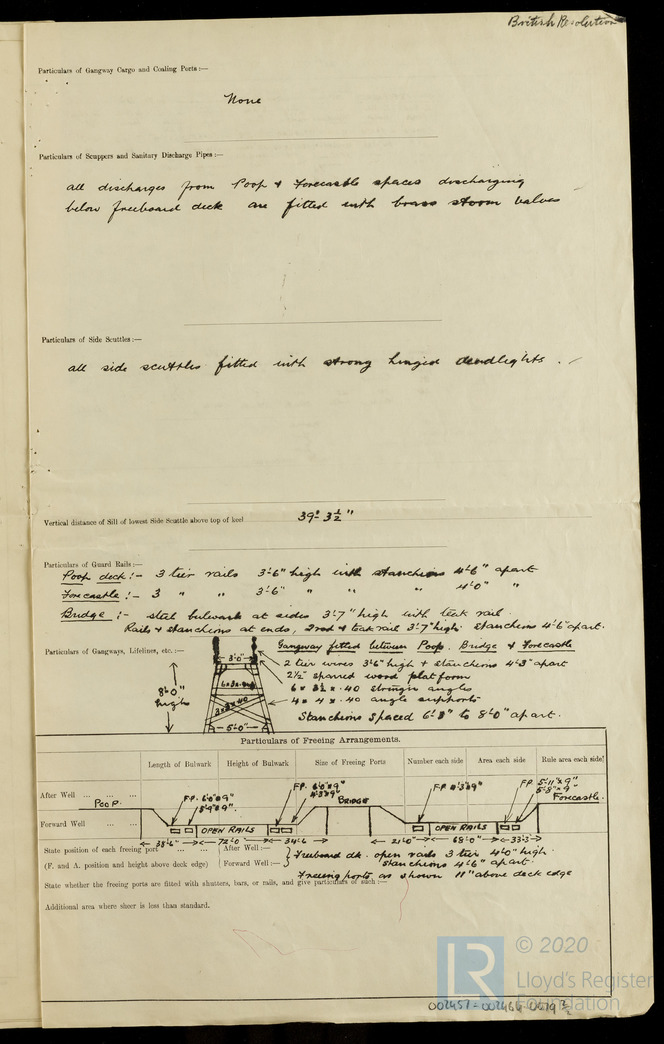 British Resolution
Particulars of Gangway Cargo and Coaling Ports :—
None
Particulars of Scuppers and Sanitary Discharge Pipes :—
all discharges from Poop & Forecastle spaces discharging
below freeboard deck are fitted with brass storm valves
Particulars of Side Scuttles :—
all side scuttles fitted with strong hinged deadlights.
Vertical distance of Sill of lowest Side Scuttle above top of keel 39'- 3½"
Particulars of Guard Rails :—
Poop deck :- 3 tier rails 3'-6" high with stanchions 4'-6" apart
Forecastle :- 3 " " 3'-6" " " " 4'-0" "
Bridge :- steel bulwark at sides 3'-7" high with teak rail.
Rails & stanchions at ends, 2 rod & teak rail 3'-7" high. Stanchions 4'-6" apart.
Particulars of Gangways, Lifelines, etc. :—
Gangway fitted between Poop, Bridge & Forecastle
2 tier wires 3'-6" high & stanchions 4'-3" apart
2½" sparred wood platform
6 x 3½ x .40 stringer angles
4 x 4 x .40 angle supports
Stanchions spaced 6'-8" to 8'-0" apart.
3'-0"
8'-0"
high
3 x 3 x .40
5'-0"
Particulars of Freeing Arrangements.
Length of Bulwark
Height of Bulwark
Size of Freeing Ports
Number each side
Area each side
Rule area each side
After Well ... ... ...
Forward Well ... ...
POOP
F.P. 6'-0" x 9"
5'-9" x 9".
F.P. 6'-0" x 9"
4'-3" x 9"
BRIDGE
F.P. 4'-3" x 9"
F.P. 5'-11" x 9"
5'-8" x 9"
Forecastle.
OPEN RAILS
OPEN RAILS
38'-6"
72'-0"
34'-6
21'-0"
68'-0"
33'-3
State position of each freeing port ... ... ...
(F. and A. position and height above deck edge)
After Well :—
Forward Well :—
Freeboard dk. open rails 3 tier 4'-0" high.
Stanchions 4'-6" apart.
Freeing ports as shown 11" above deck edge
State whether the freeing ports are fitted with shutters, bars, or rails, and give particulars of such :—
Additional area where sheer is less than standard.
LR
© 2020
Lloyd's Register
Foundation
002457-002464-0079 ½